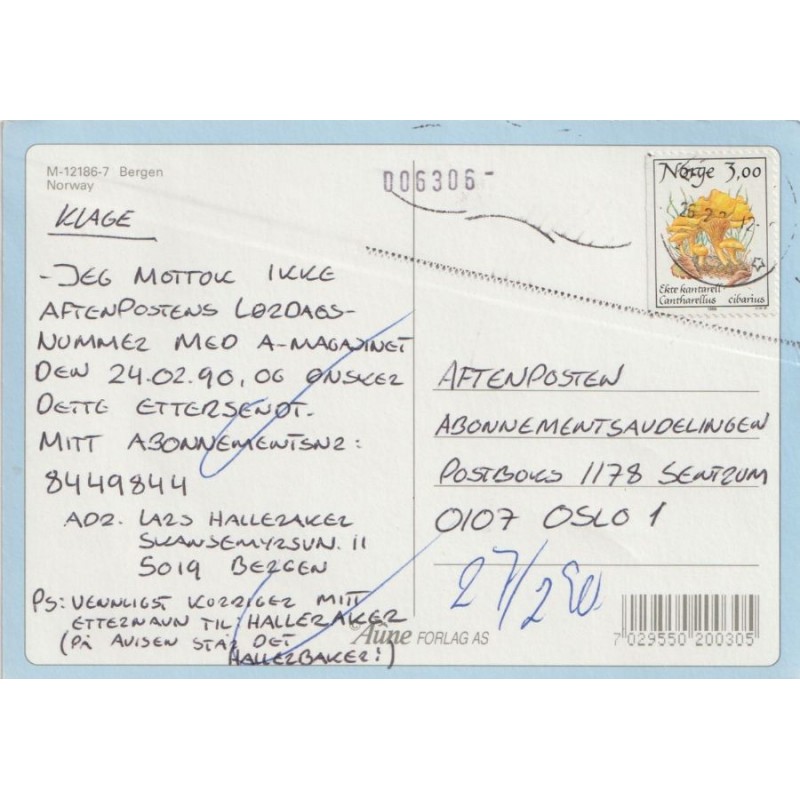 M-12186-7 Bergen
Norway
006306-
Norge 3,00
Ekte kantarell
Cantharellus cibarius
KLAGE
- JEG MOTTOK IKKE
AFTENPOSTENS LØRDAGS-
NUMMER MED A-MAGASINET
DEN 24.02.90, OG ØNSKER
DETTE ETTERSENDT.
MITT ABONNEMENTSNR:
8449844
ADR. LARS HALLERAKER
SKANSEMYRSVN. 11
5019 BERGEN
PS: VENNLIGST KORRIGER MITT
ETTERNAVN TIL HALLERAKER
(PÅ AVISEN STÅR DET
HALLERBAKER!)
AFTENPOSTEN
ABONNEMENTSAVDELINGEN
POSTBOKS 1178 SENTRUM
0107 OSLO 1
27/2 90
© Aune FORLAG AS
7 029550 200305